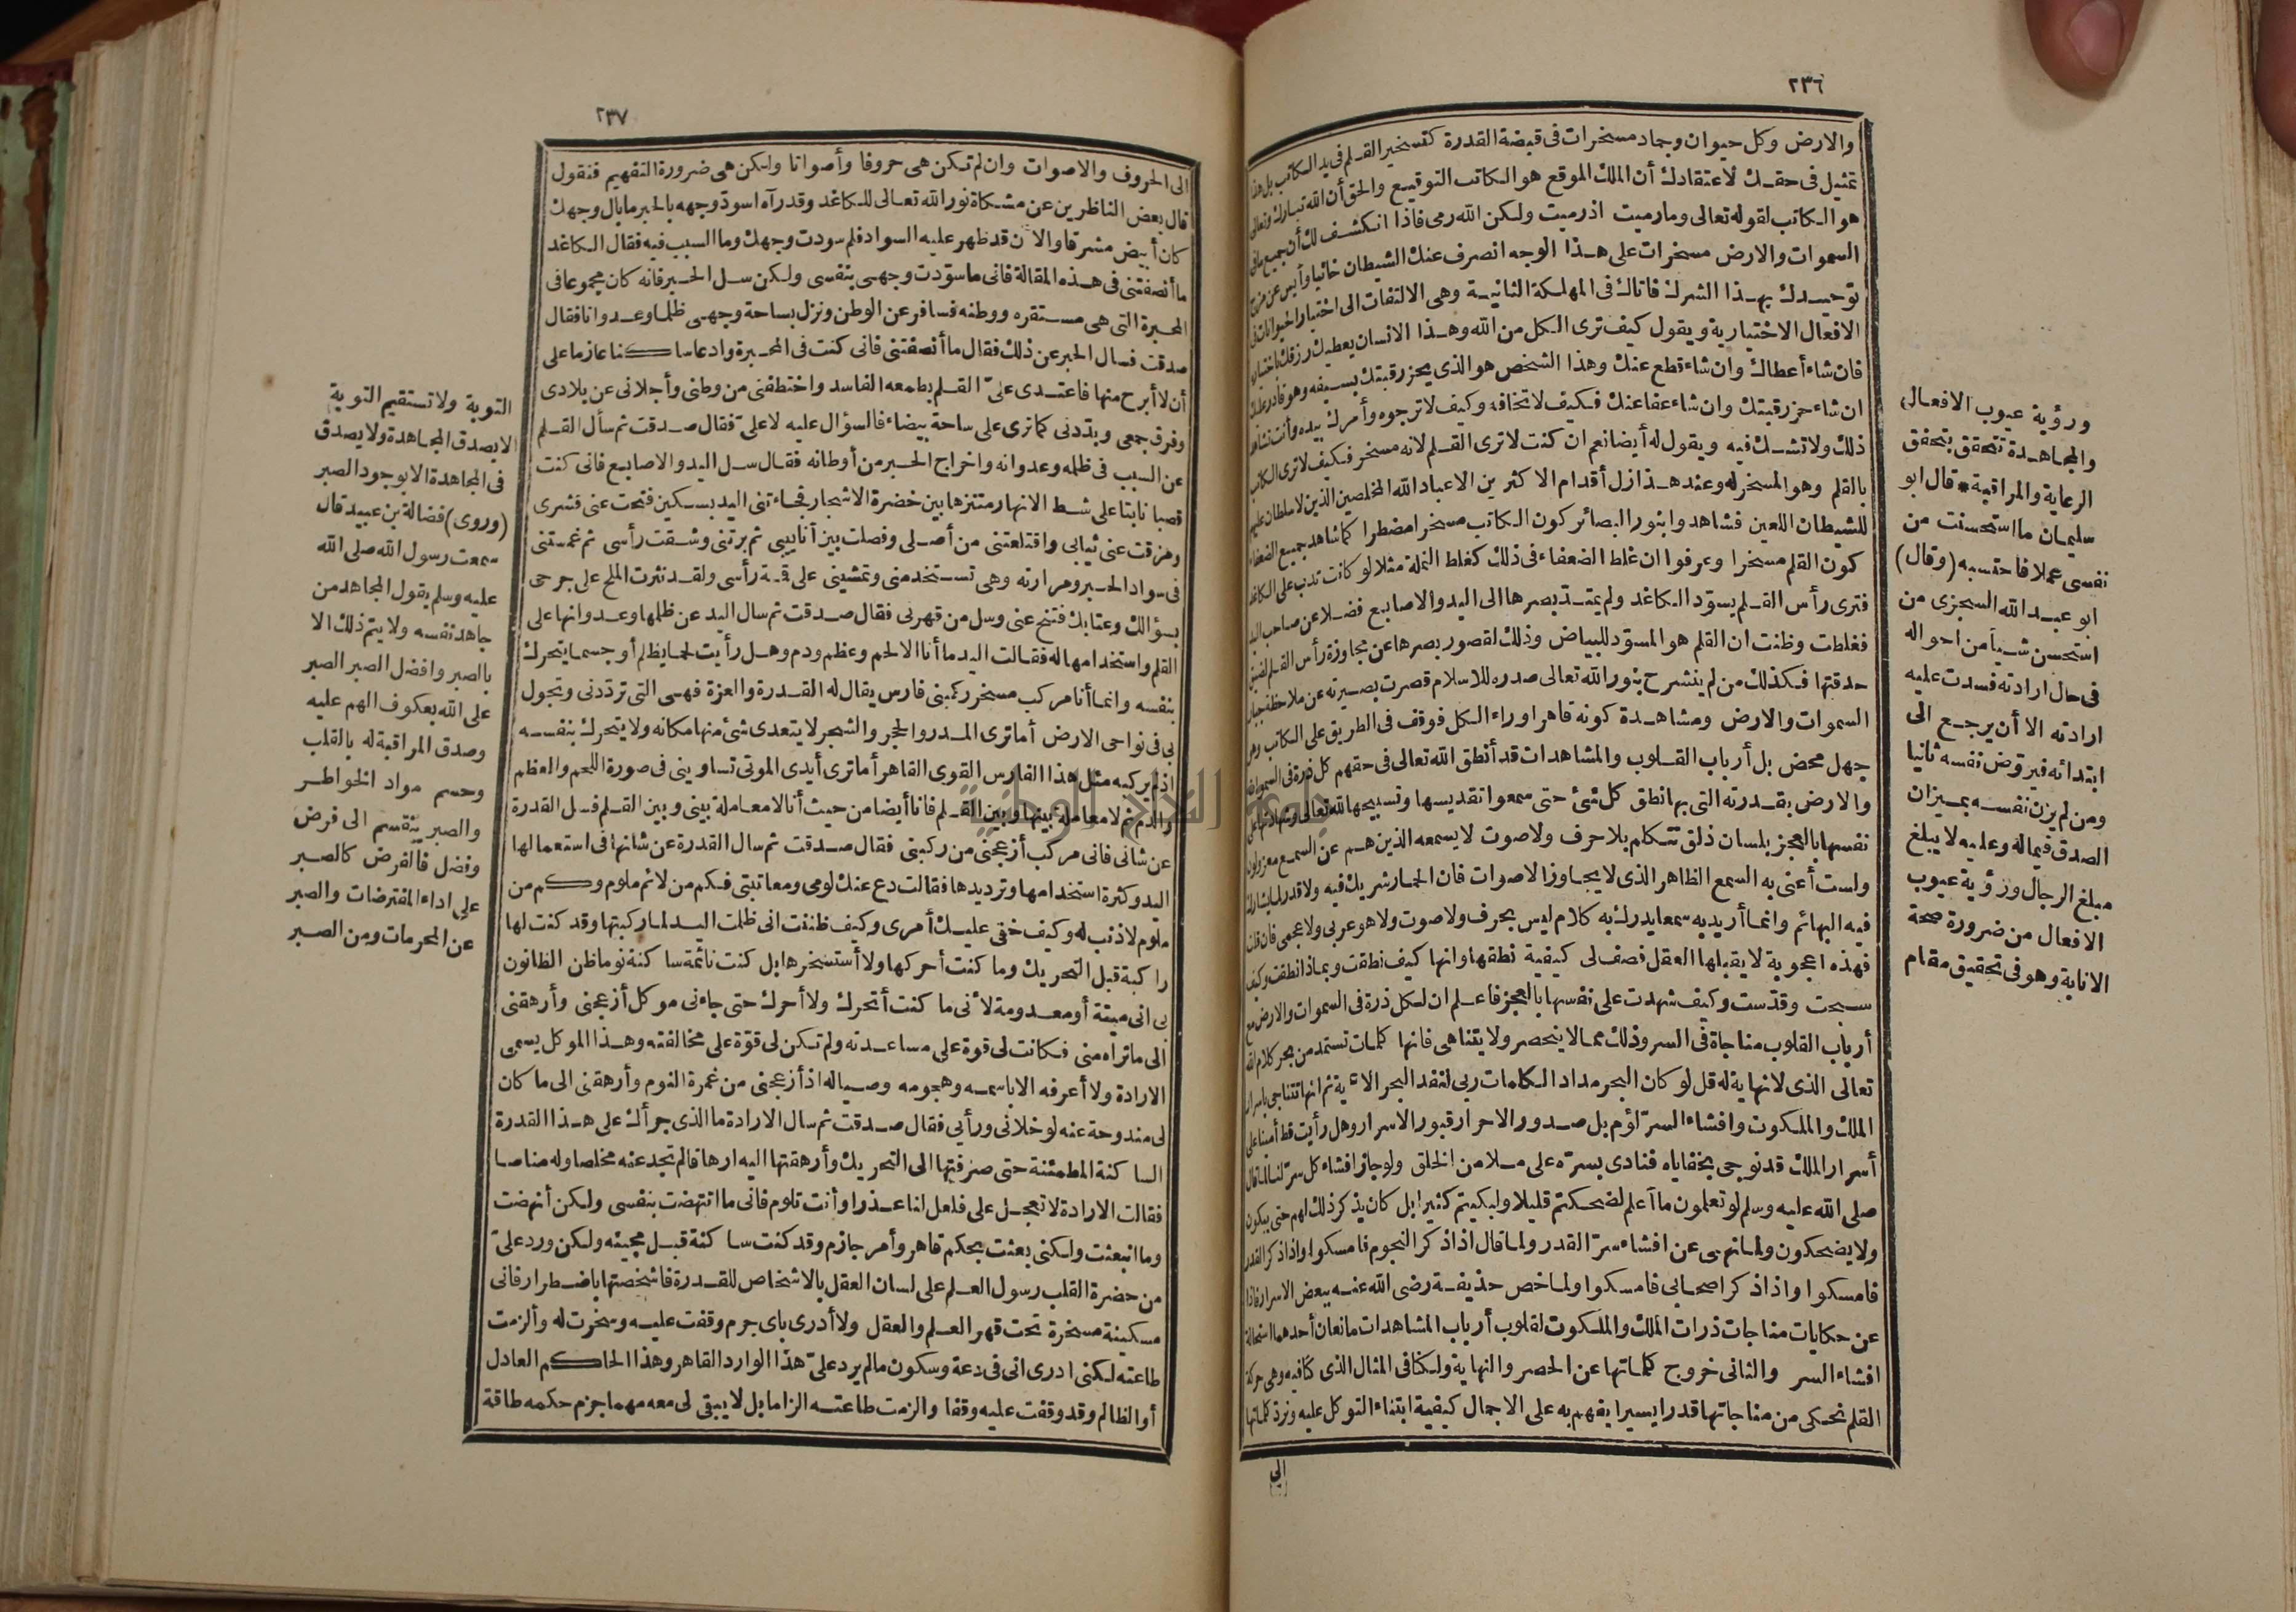 ٢٣٦
والارض وكل حيوان وجماد مسخرات فى قبضة القدرة كتسخير القلم فى يد الكاتب بل هذا
تمثيل فى حقك لاعتقادك أن الملك الموقع هو الكاتب التوقيع والحق أن الله تبارك وتعالى
هو الكاتب لقوله تعالى وما رميت اذ رميت ولكن الله رمى فاذا انكشف لك أن جميع ما فى
السموات والارض مسخرات على هذا الوجه انصرف عنك الشيطان خائبا وأيس عن مزج
توحيدك بهذا الشرك فأتاك فى المهلكة الثانية وهى الالتفات الى اختيار الحيوانات فى
الافعال الاختيارية ويقول كيف ترى الكل من الله وهذا الانسان يعطيك رزقك باختياره
فان شاء أعطاك وان شاء قطع عنك وهذا الشخص هو الذى يحز رقبتك بسيفه وهو قادر عليك
ان شاء حز رقبتك وان شاء عفا عنك فكيف لا تخافه وكيف لا ترجوه وأمرك بيده وأنت تشاهد
ذلك ولا تشك فيه ويقول له أيضا نعم ان كنت لا ترى القلم لانه مسخر فكيف لا ترى الكاتب
بالقلم وهو المسخر له وعند هذا زل أقدام الاكثرين الا عباد الله المخلصين الذين لا سلطان عليهم
للشيطان اللعين فشاهدوا بنور البصائر كون الكاتب مسخرا مضطرا كما شاهد جميع الضعفاء
كون القلم مسخرا وعرفوا ان غلط الضعفاء فى ذلك كغلط النملة مثلا لو كانت تدب على الكاغد
فترى رأس القلم يسوّد الكاغد ولم يمتد بصرها الى اليد والاصابع فضلا عن صاحب اليد
فغلطت وظنت ان القلم هو المسوّد للبياض وذلك لقصور بصرها عن مجاوزة رأس القلم لضيق
حدقتها فكذلك من لم ينشرح بنور الله تعالى صدره للاسلام قصرت بصيرته عن ملاحظة جبار
السموات والارض ومشاهدة كونه قاهرا وراء الكل فوقف فى الطريق على الكاتب وهو
جهل محض بل أرباب القلوب والمشاهدات قد أنطق الله تعالى فى حقهم كل ذرة فى السموات
والارض بقدرته التى بها نطق كل شئ حتى سمعوا تقديسها وتسبيحها لله تعالى وشهادتها على
نفسها بالعجز بلسان ذلق تتكلم بلا حرف ولا صوت لا يسمعه الذين هم عن السمع معزولون
ولست أعنى به السمع الظاهر الذى لا يجاوز الاصوات فان الحمار شريك فيه ولا قدر لما يشارك
فيه البهائم وانما أريد به سمعا يدرك به كلام ليس بحرف ولا صوت ولا هو عربى ولا عجمى فان قلت
فهذه اعجوبة لا يقبلها العقل فصف لى كيفية نطقها وانها كيف نطقت وبماذا نطقت وكيف
سبحت وقدّست وكيف شهدت على نفسها بالعجز فاعلم ان لكل ذرة فى السموات والارض مع
أرباب القلوب مناجاة فى السر وذلك مما لا ينحصر ولا يتناهى فانها كلمات تستمد من بحر كلام الله
تعالى الذى لا نهاية له قل لو كان البحر مداد الكلمات ربى لنفد البحر الآية ثم انها تتناجى باسرار
الملك والملكوت وافشاء السرّ لؤم بل صدور الاحرار قبور الاسرار وهل رأيت قط أمينا على
أسرار الملك قد نوجى بخفاياه فنادى بسرّه على ملا من الخلق ولو جاز افشاء كل سر لنا لما قال
صلى الله عليه وسلم لو تعلمون ما أعلم لضحكتم قليلا ولبكيتم كثيرا بل كان يذكر ذلك لهم حتى يبكون
ولا يضحكون ولما نهى عن افشاء سرّ القدر ولما قال اذا ذكر النجوم فامسكوا واذا ذكر القدر
فامسكوا واذا ذكر اصحابى فامسكوا ولما خص حذيفة رضى الله عنه ببعض الاسرار فاذا
عن حكايات مناجات ذرات الملك والملكوت لقلوب أرباب المشاهدات مانعان أحدهما استحالة
افشاء السر والثانى خروج كلماتها عن الحصر والنهاية ولكنا فى المثال الذى كنا فيه وهى حركة
القلم نحكى من مناجاتها قدرا يسيرا يفهم به على الاجمال كيفية ابتناء التوكل عليه ونرد كلماتها
الى
ورؤية عيوب الافعال
والمجاهدة تتحقق بتحقق
الرعاية والمراقبة * قال ابو
سليمان ما استحسنت من
نفسى عملا فاحتسبه (وقال)
ابو عبد الله السجزى من
استحسن شيأ من احواله
فى حال ارادته فسدت عليه
ارادته الا أن يرجع الى
ابتدائه فيروّض نفسه ثانيا
ومن لم يزن نفسه بميزان
الصدق فيما له وعليه لا يبلغ
مبلغ الرجال ورؤية عيوب
الافعال من ضرورة صحة
الانابة وهو فى تحقيق مقام
٢٣٧
الى الحروف والاصوات وان لم تكن هى حروفا وأصواتا ولكن هى ضرورة التفهيم فنقول
قال بعض الناظرين عن مشكاة نور الله تعالى للكاغد وقد رآه اسودّ وجهه بالحبر ما بال وجهك
كان أبيض مشرقا والآن قد ظهر عليه السواد فلم سودت وجهك وما السبب فيه فقال الكاغد
ما أنصفتنى فى هذه المقالة فانى ما سوّدت وجهى بنفسى ولكن سل الحبر فانه كان مجموعا فى
المحبرة التى هى مستقره ووطنه فسافر عن الوطن ونزل بساحة وجهى ظلما وعدوانا فقال
صدقت فسال الحبر عن ذلك فقال ما أنصفتنى فانى كنت فى المحبرة وادعا ساكنا عازما على
أن لا أبرح منها فاعتدى علىّ القلم بطمعه الفاسد واختطفنى من وطنى وأجلانى عن بلادى
وفرق جمعى وبددنى كما ترى على ساحة بيضاء فالسؤال عليه لا علىّ فقال صدقت ثم سأل القلم
عن السبب فى ظلمه وعدوانه واخراج الحبر من أوطانه فقال سل اليد والاصابع فانى كنت
قصبا نابتا على شط الانهار متنزها بين خضرة الاشجار فجاءتنى اليد بسكين فنحت عنى قشرى
ومزقت عنى ثيابى واقتلعتنى من أصلى وفصلت بين أنابيبى ثم برتنى وشقت رأسى ثم غمستنى
فى سواد الحبر ومرارته وهى تستخدمنى وتمشينى على قمة رأسى ولقد نثرت الملح على جرحى
بسؤالك وعتابك فتنح عنى وسل من قهرنى فقال صدقت ثم سال اليد عن ظلمها وعدوانها على
القلم واستخدامها له فقالت اليد ما أنا الا لحم وعظم ودم وهل رأيت لحما يظلم أو جسما يتحرك
بنفسه وانما أنا مركب مسخر ركبنى فارس يقال له القدرة والعزة فهى التى ترددنى وتجول
بى فى نواحى الارض أما ترى المدر والحجر والشجر لا يتعدى شئ منها مكانه ولا يتحرك بنفسه
اذ لم يركبه مثل هذا الفارس القوى القاهر أما ترى أيدى الموتى تساوينى فى صورة اللحم والعظم
والدم ثم لا معاملة بينها وبين القلم فانا أيضا من حيث أنا لا معاملة بينى وبين القلم فسل القدرة
عن شانى فانى مركب أزعجنى من ركبنى فقال صدقت ثم سال القدرة عن شانها فى استعمالها
اليد وكثرة استخدامها وترديدها فقالت دع عنك لومى ومعاتبتى فكم من لائم ملوم وكم من
ملوم لا ذنب له وكيف خفى عليك أمرى وكيف ظننت انى ظلمت اليد لما ركبتها وقد كنت لها
راكبة قبل التحريك وما كنت أحركها ولا أستسخرها بل كنت نائمة ساكنة نوما ظن الظانون
بى انى ميتة أو معدومة لأنى ما كنت أتحرك ولا أحرك حتى جاءنى موكل أزعجنى وأرهقنى
الى ما تراه منى فكانت لى قوة على مساعدته ولم تكن لى قوّة على مخالفته وهذا الموكل يسمى
الارادة ولا أعرفه الا باسمه وهجومه وصياله اذ أزعجنى من غمرة النوم وأرهقنى الى ما كان
لى مندوحة عنه لو خلانى ورأيى فقال صدقت ثم سال الارادة ما الذى جرأك على هذا القدرة
الساكنة المطمئنة حتى صرفتها الى التحريك وأرهقتها اليه ارهاقا لم تجد عنه مخلصا وله مناصا
فقالت الارادة لا تعجل على فلعل لنا عذرا وأنت تلوم فانى ما انتهضت بنفسى ولكن أنهضت
وما انبعثت ولكنى بعثت بحكم قاهر وأمر جازم وقد كنت ساكنة قبل مجيئه ولكن ورد علىّ
من حضرة القلب رسول العلم على لسان العقل بالاشخاص للقدرة فاشخصتها باضطرار فانى
مسكينة مسخرة تحت قهر العلم والعقل ولا أدرى باى جرم وقفت عليه وسخرت له وألزمت
طاعته لكنى ادرى انى فى دعة وسكون ما لم يرد علىّ هذا الوارد القاهر وهذا الحاكم العادل
أو الظالم وقد وقفت عليه وقفا والزمت طاعته الزاما بل لا يبقى لى معه مهما جزم حكمه طاقة
التوبة ولا تستقيم التوبة
الا بصدق المجاهدة ولا يصدق
فى المجاهدة الا بوجود الصبر
(وروى) فضالة بن عبيد قال
سمعت رسول الله صلى الله
عليه وسلم يقول المجاهد من
جاهد نفسه ولا يتم ذلك الا
بالصبر وافضل الصبر الصبر
على الله بعكوف الهم عليه
وصدق المراقبة له بالقلب
وحسم مواد الخواطر
والصبر ينقسم الى فرض
وفضل فالفرض كالصبر
على اداء المفترضات والصبر
عن المحرمات ومن الصبر